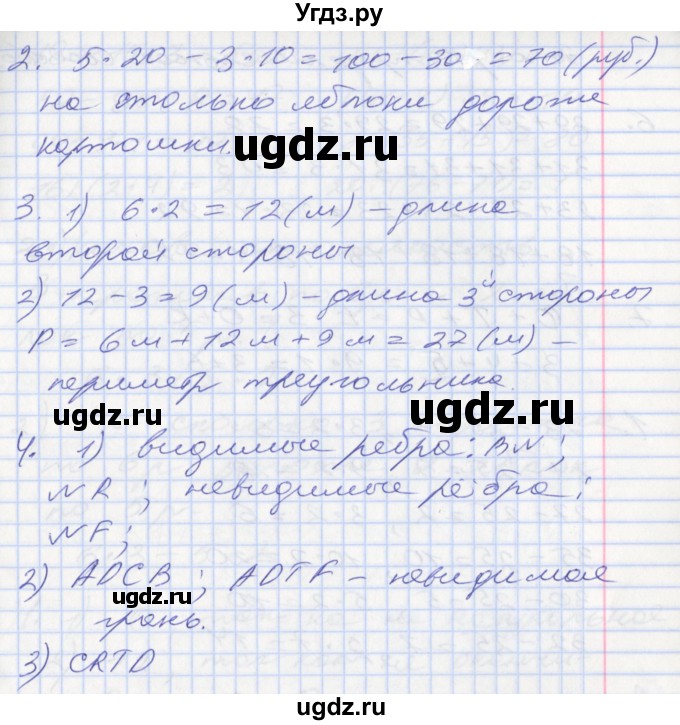 Угдз.ру
2. 5·20 - 3·10 = 100 - 30 = 70 (руб.)
на столько яблоки дороже
картошки.
ugdz.ru
ugdz.ru
3. 1) 6·2 = 12 (м) - длина
второй стороны
2) 12 - 3 = 9 (м) - длина 3й стороны
P = 6м + 12м + 9м = 27 (м) -
периметр треугольника.
ugdz.ru
ugdz.ru
4. 1) видимые ребра: BN;
NR; невидимые ребра:
NF;
2) ADCB; ADTF - невидимая
ugdz.ru
грань.
3) CRTD
ugdz.ru